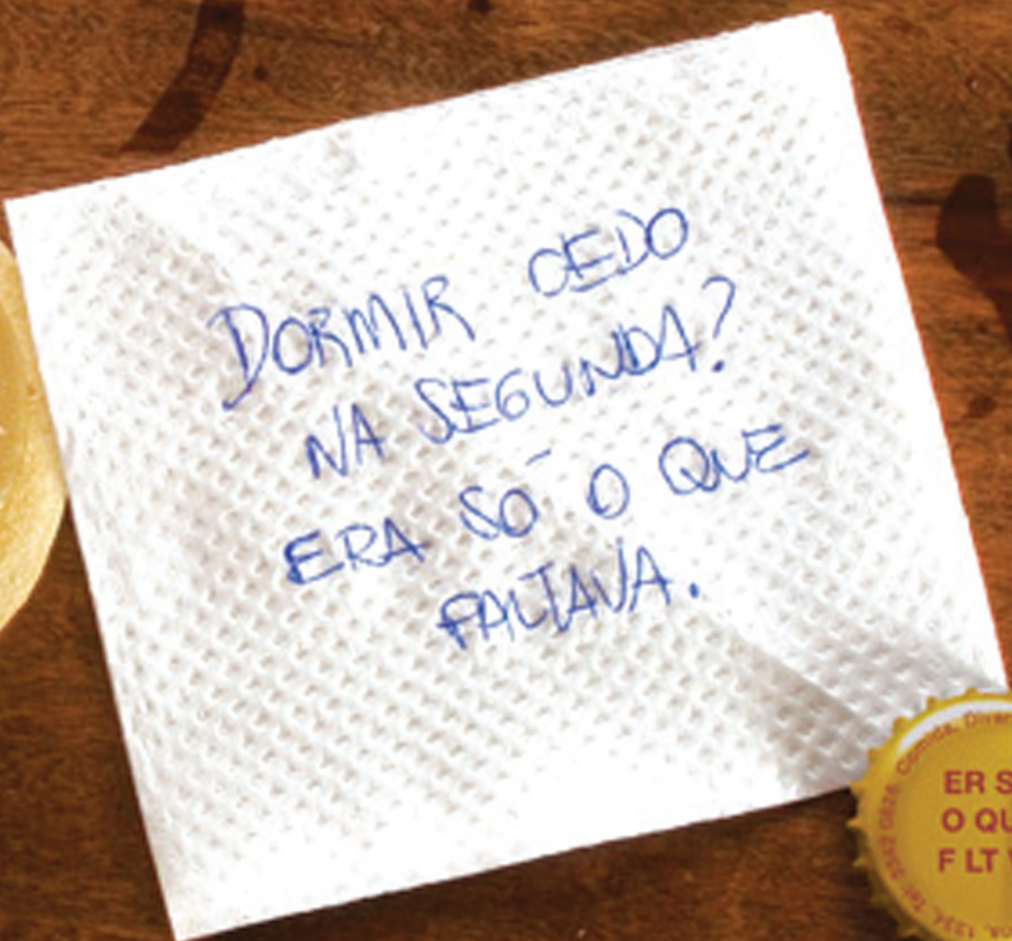 DORMIR CEDO
NA SEGUNDA?
ERA SÓ O QUE
FALTAVA.
ER S
O QU
F LT
Comida, Diver